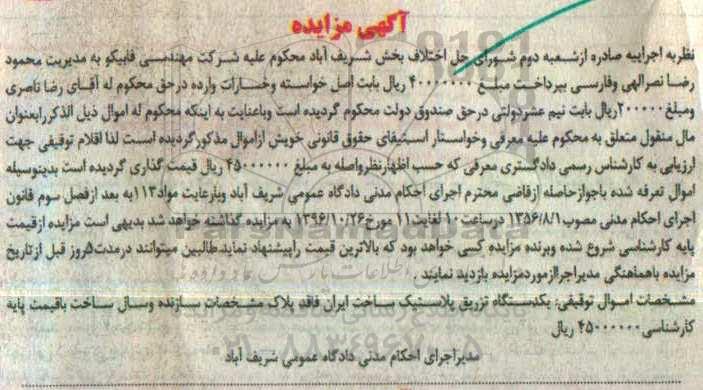 آگهی مزایده
نظربه اجراییه صادره ازشعبه دوم شورای حل اختلاف بخش شریف آباد محکوم علیه شرکت مهندسی فابیکو به مدیریت محمود
رضا نصرالهی وفارسی بپرداخت مبلغ ۴۰۰۰۰۰۰۰ ریال بابت اصل خواسته وخسارات وارده درحق محکوم له آقای رضا ناصری
ومبلغ ۲۰۰۰۰۰۰ ریال بابت نیم عشردولتی درحق صندوق دولت محکوم گردیده است وباعنایت به اینکه محکوم له اموال ذیل الذکررابعنوان
مال منقول متعلق به محکوم علیه معرفی وخواستار استیفای حقوق قانونی خویش ازاموال مذکورگردیده است لذا اقلام توقیفی جهت
ارزیابی به کارشناس رسمی دادگستری معرفی که حسب اظهارنظرواصله به مبلغ ۴۵۰۰۰۰۰۰ ریال قیمت گذاری گردیده است بدینوسیله
اموال تعرفه شده باجوازحاصله ازقاضی محترم اجرای احکام مدنی دادگاه عمومی شریف آباد وبارعایت مواد۱۱۳به بعد ازفصل سوم قانون
اجرای احکام مدنی مصوب۱۳۵۶/۸/۱ درساعت۱۰ لغایت۱۱ مورخ۱۳۹۶/۱۰/۲۶ به مزایده گذاشته خواهد شد بدیهی است مزایده ازقیمت
پایه کارشناسی شروع شده وبرنده مزایده کسی خواهد بود که بالاترین قیمت راپیشنهاد نماید.طالبین میتوانند درمدت۵روز قبل ازتاریخ
مزایده باهماهنگی مدیراجراازموردمزایده بازدید نمایند .
مشخصات اموال توقیفی: یکدستگاه تزریق پلاستیک ساخت ایران فاقد پلاک مشخصات سازنده وسال ساخت باقیمت پایه
کارشناسی۴۵۰۰۰۰۰۰ ریال
مدیراجرای احکام مدنی دادگاه عمومی شریف آباد
ParsNamadData
۰۲۱-۸۸۳۴۹۶۷۰-۵